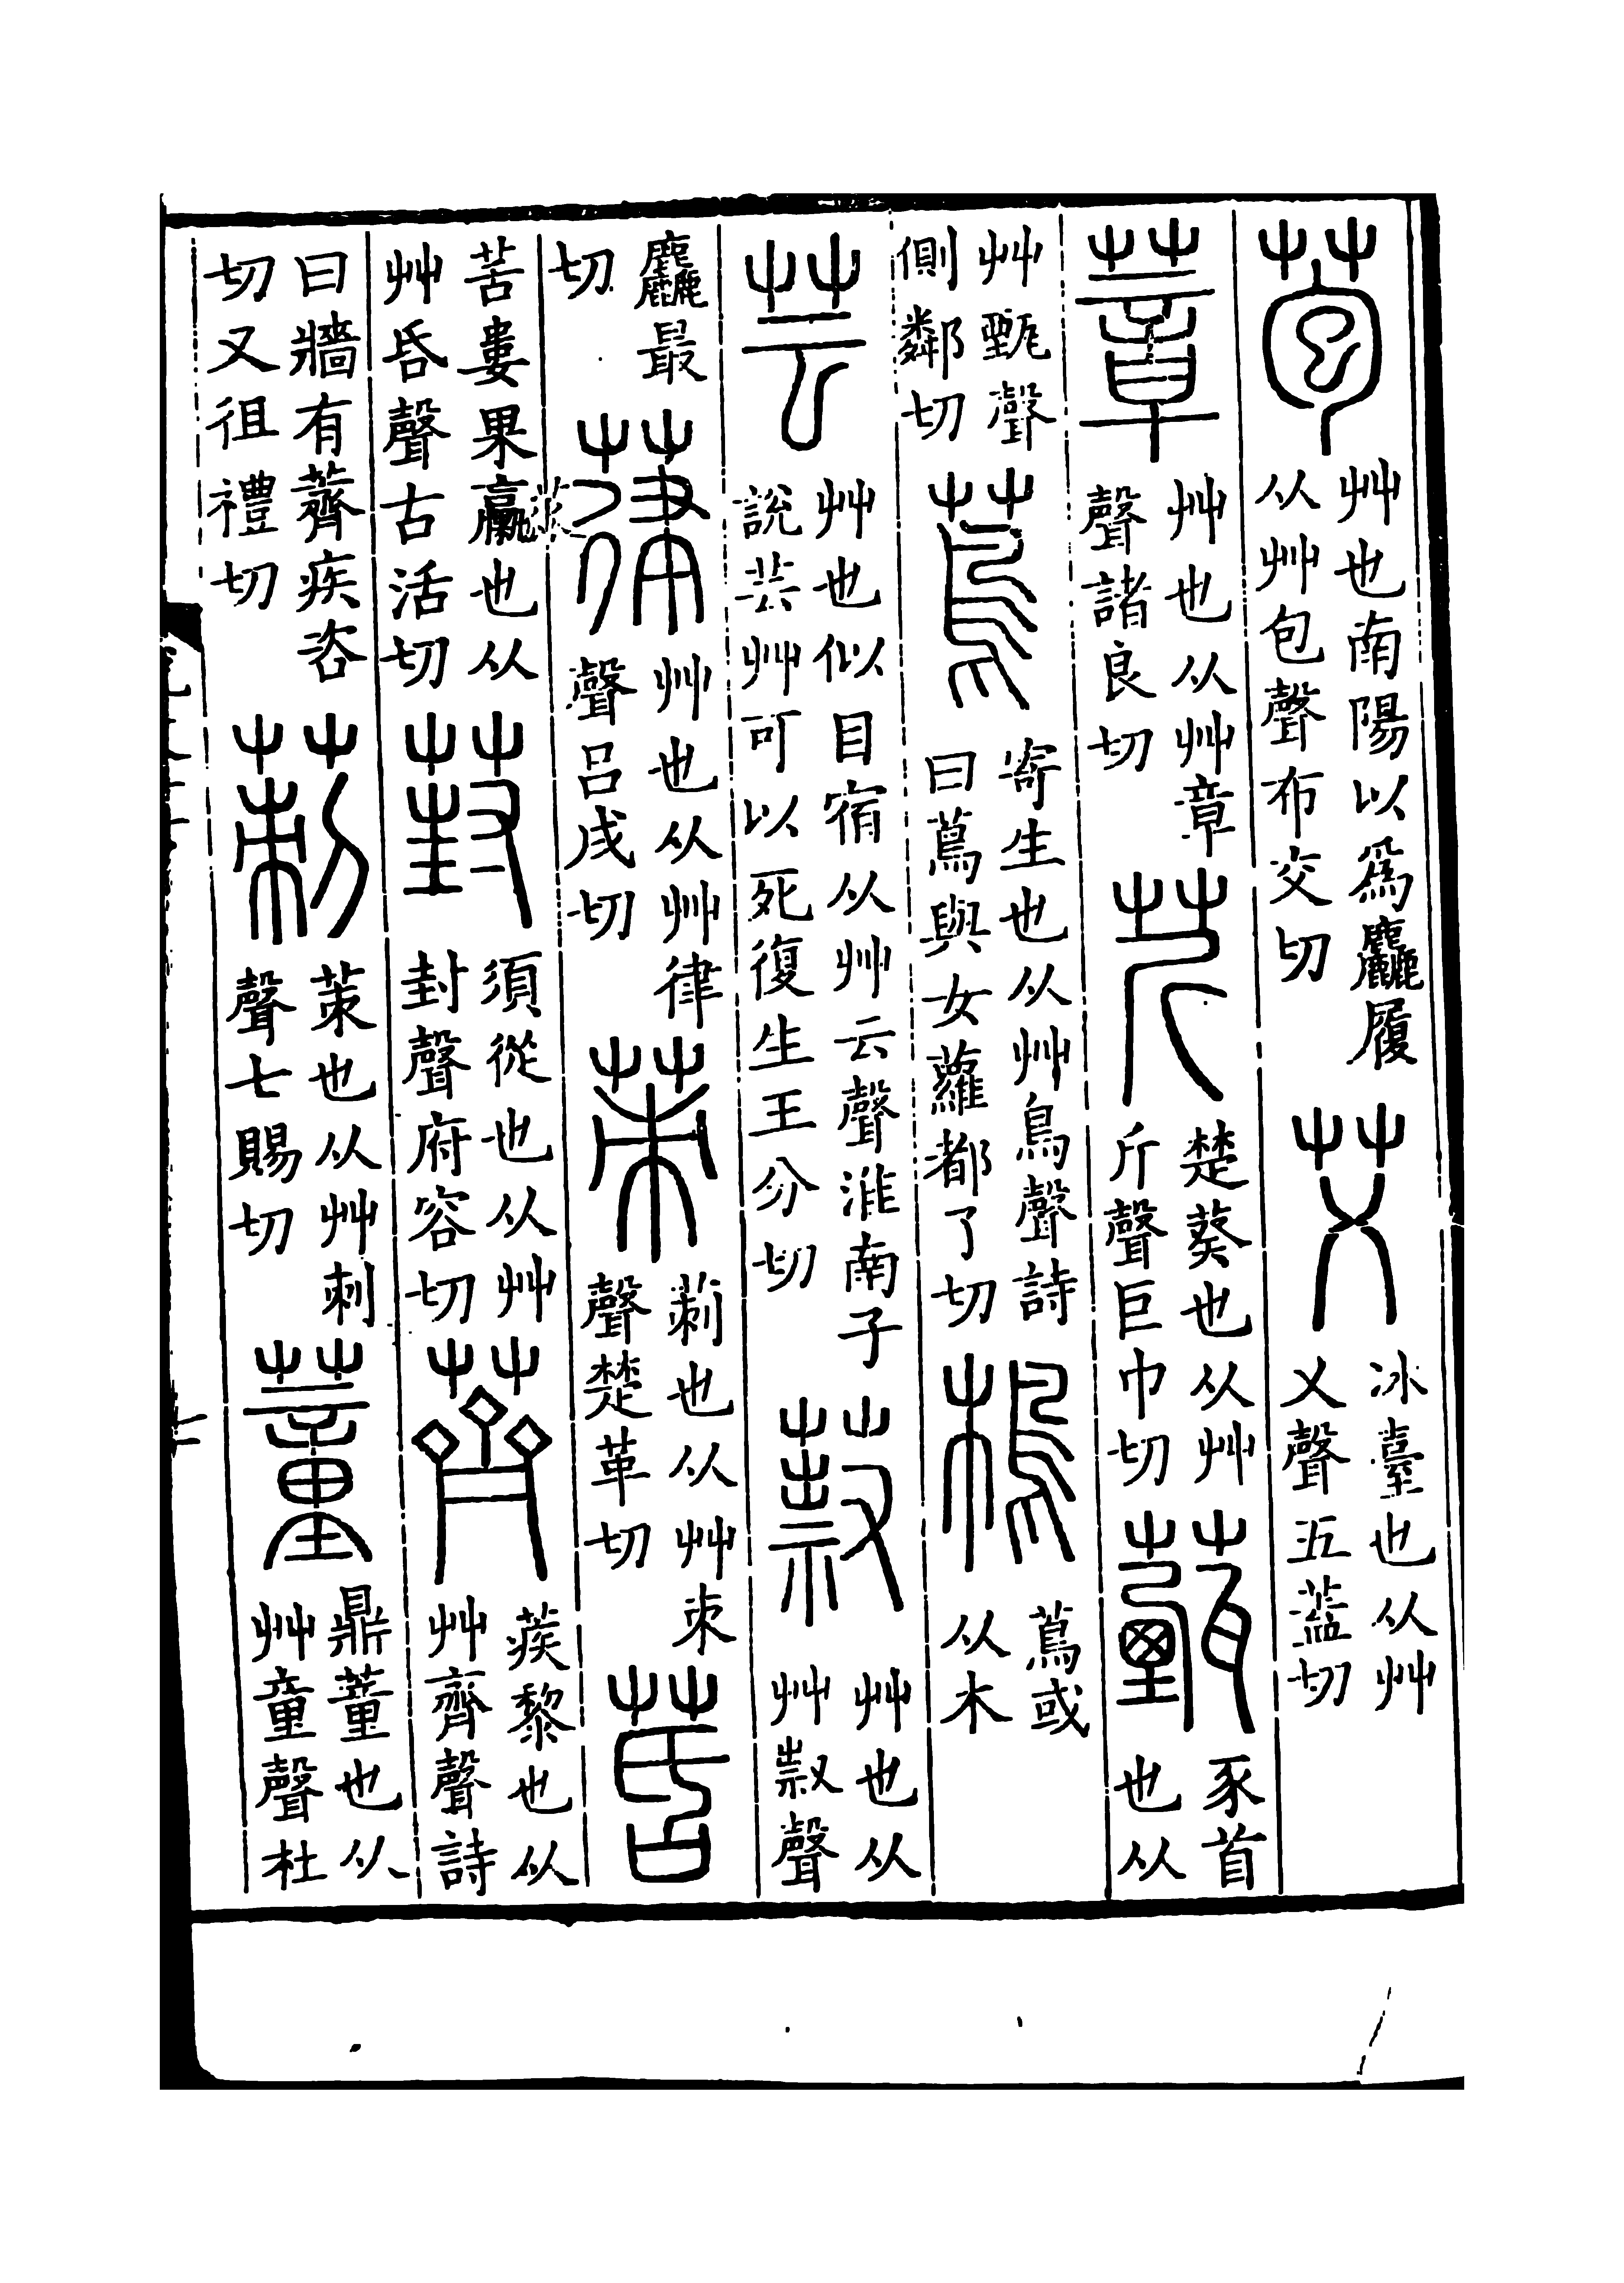 苞艸也南陽以爲麤履从艸包聲布交切艾冰臺也从艸乂聲五蓋切
蔁艸也从艸章聲諸良切芹楚葵也从艸斤聲巨巾切薽豕首也从
艸甄聲側鄰切蔦寄生也从艸鳥聲詩曰蔦與女蘿都了切樢蔦或从木
芸艸也似目宿从艸云聲淮南子說芸艸可以死復生王分切艸也从艸𠭥聲
麤最切葎艸也从艸律聲呂戌切茦莿也从艸朿聲楚革切
苦婁果臝也从艸𠯑聲古活切葑須從也从艸封聲府容切薺蒺黎也从艸齊聲詩
曰牆有薺疾咨切又徂禮切莿茦也从艸刺聲七賜切蕫鼎蕫也从艸童聲杜